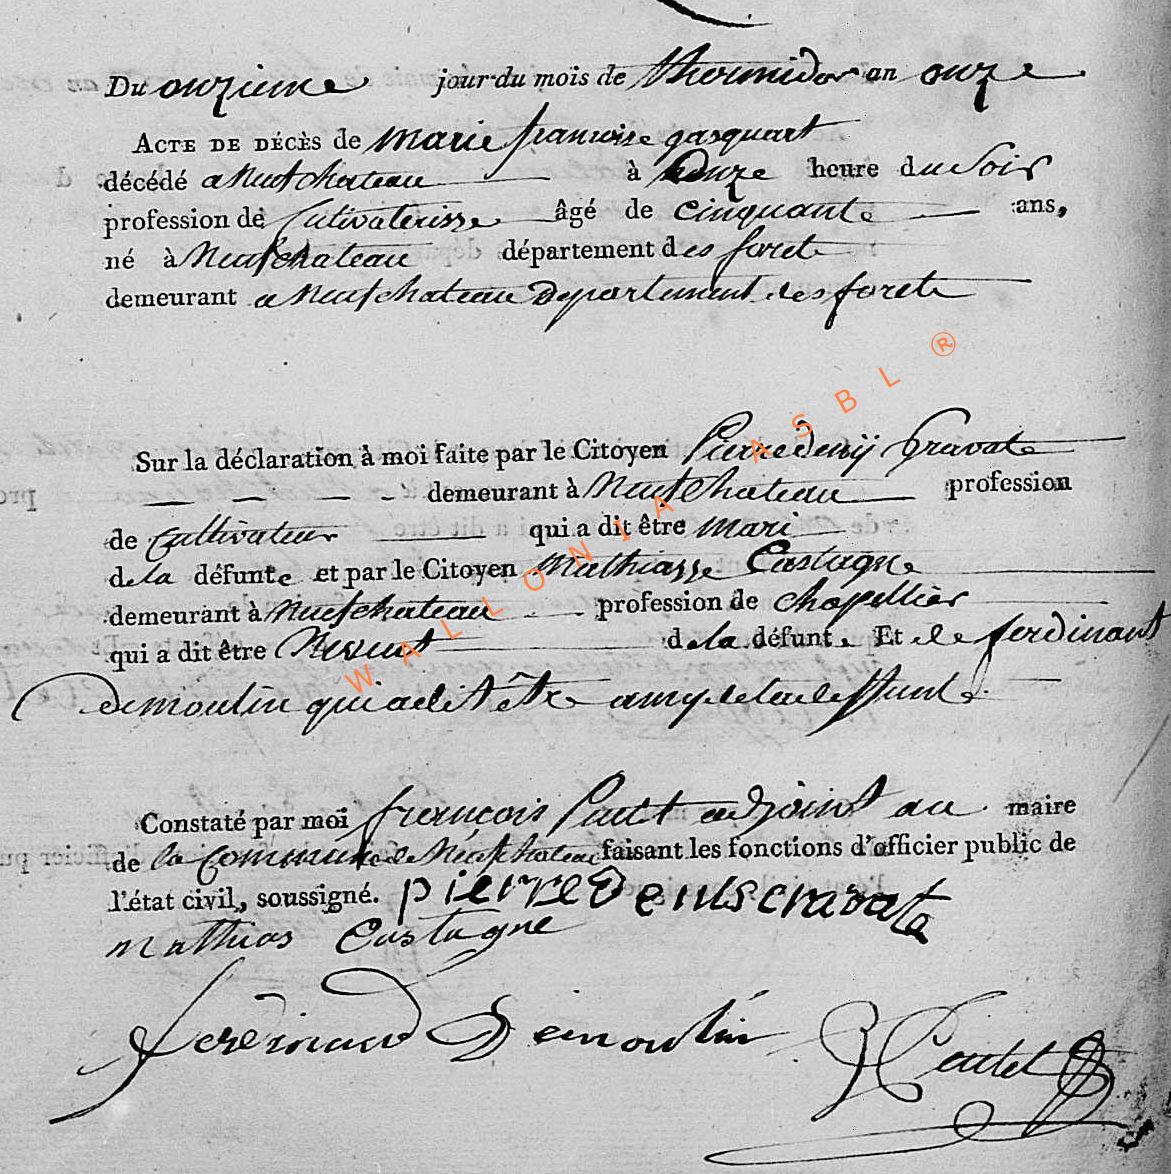 Du onzieme jour du mois de thermidor an onze
ACTE DE DÉCÈS de marie francoise gasquart
décédé a Neufchateau à onze heure du Soir
profession de Cultivaterisse âgé de cinquante ans,
né à Neufchateau département des foret
demeurant a Neufchateau Departement des forete
Sur la déclaration à moi faite par le Citoyen Pierre denij Gravate
demeurant à Neufchateau profession
de Cultivateur qui a dit être mari
de la défunte et par le Citoyen Mathiasse Castagne
demeurant à Neufchateau profession de chapellier
qui a dit être Neveut de la défunte Et de ferdinant
demoulin qui a dit être amy de la deffunte
Constaté par moi francois adjoint au maire
de la Commune de Neufchateau faisant les fonctions d'officier public de
l'état civil, soussigné. pierre Denis cravate
mathias Castagne
ferdinand Demoulin
WALLONIA ASBL ®